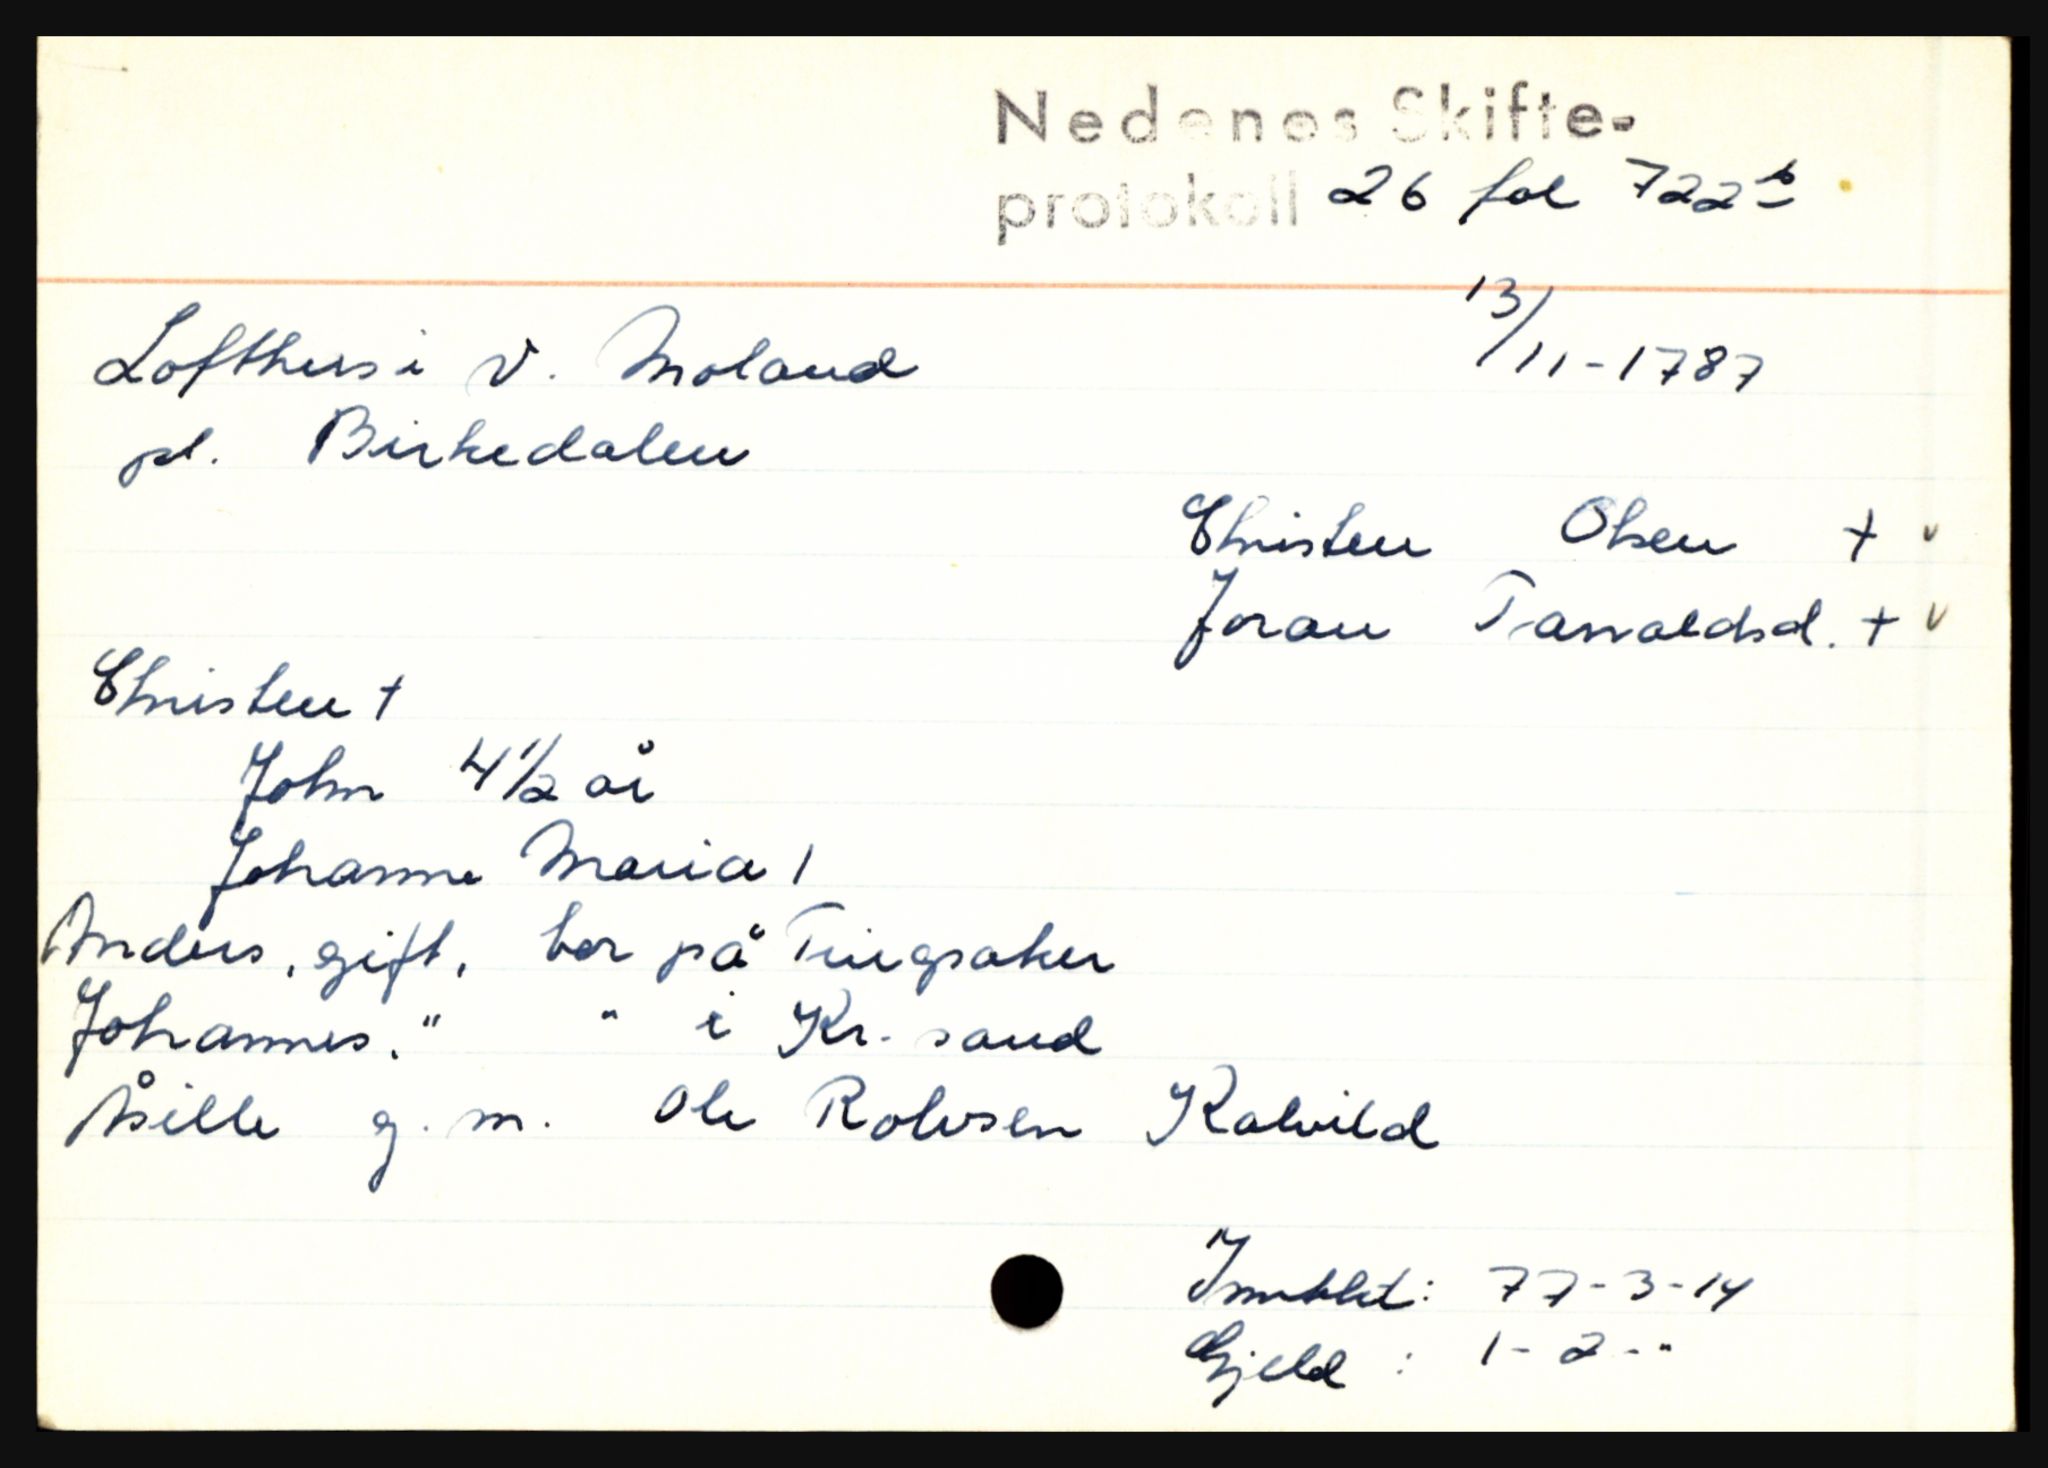 Nedenes Skifte-
protokoll 26 fol 722b
13/11-1787
Lofthus i V. Moland
pl. Birkedalen
Christen Olsen + v
Joran Tarvaldsd. + v
Christen +
John 4 1/2 år
Johanne Maria 1
Anders, gift, bor på Tingsaker
Johannes, " " i Kr. sand
Åsille g. m. Ole Rolvsen Kalvild
Innbkt: 77-3-14
Gjeld : 1-2-"